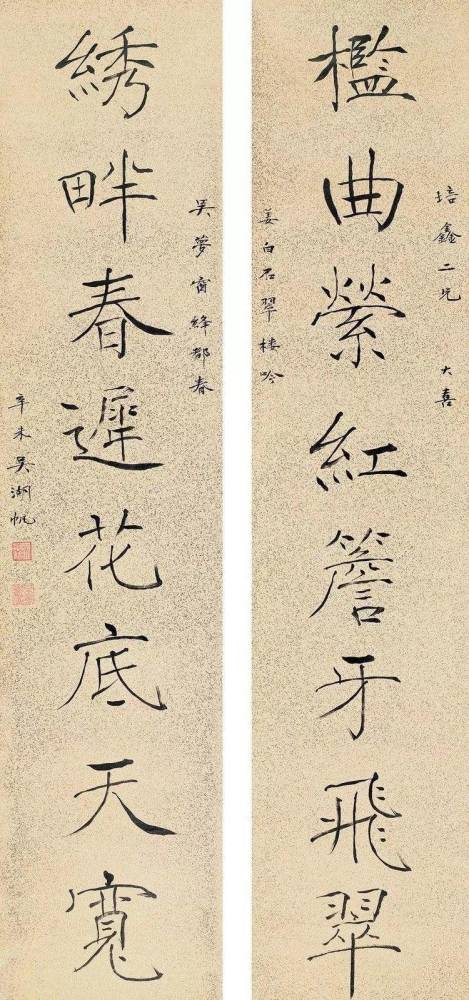 培鑫二兄 大喜
檻曲縈紅簷牙飛翠
姜白石翠樓吟
吳夢窗絳都春
綉畔春遲花底天寬
辛未吳湖帆